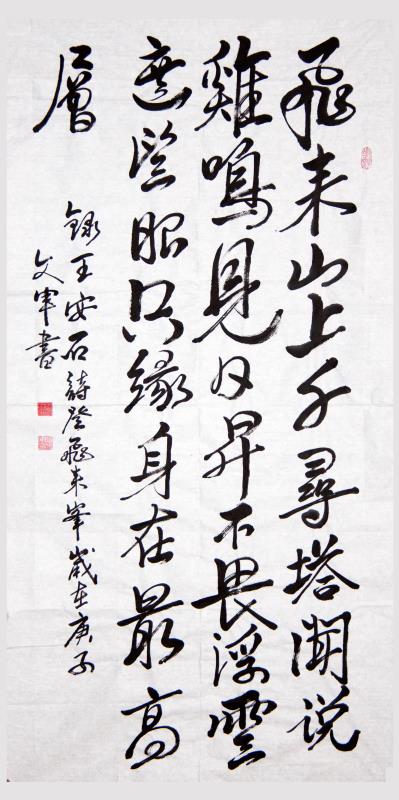 飛来山上千尋塔聞说
雞鳴見日昇不畏浮雲
遮望眼只緣身在最高
層
録王安石詩登飛来峯歲在庚子
文軍書